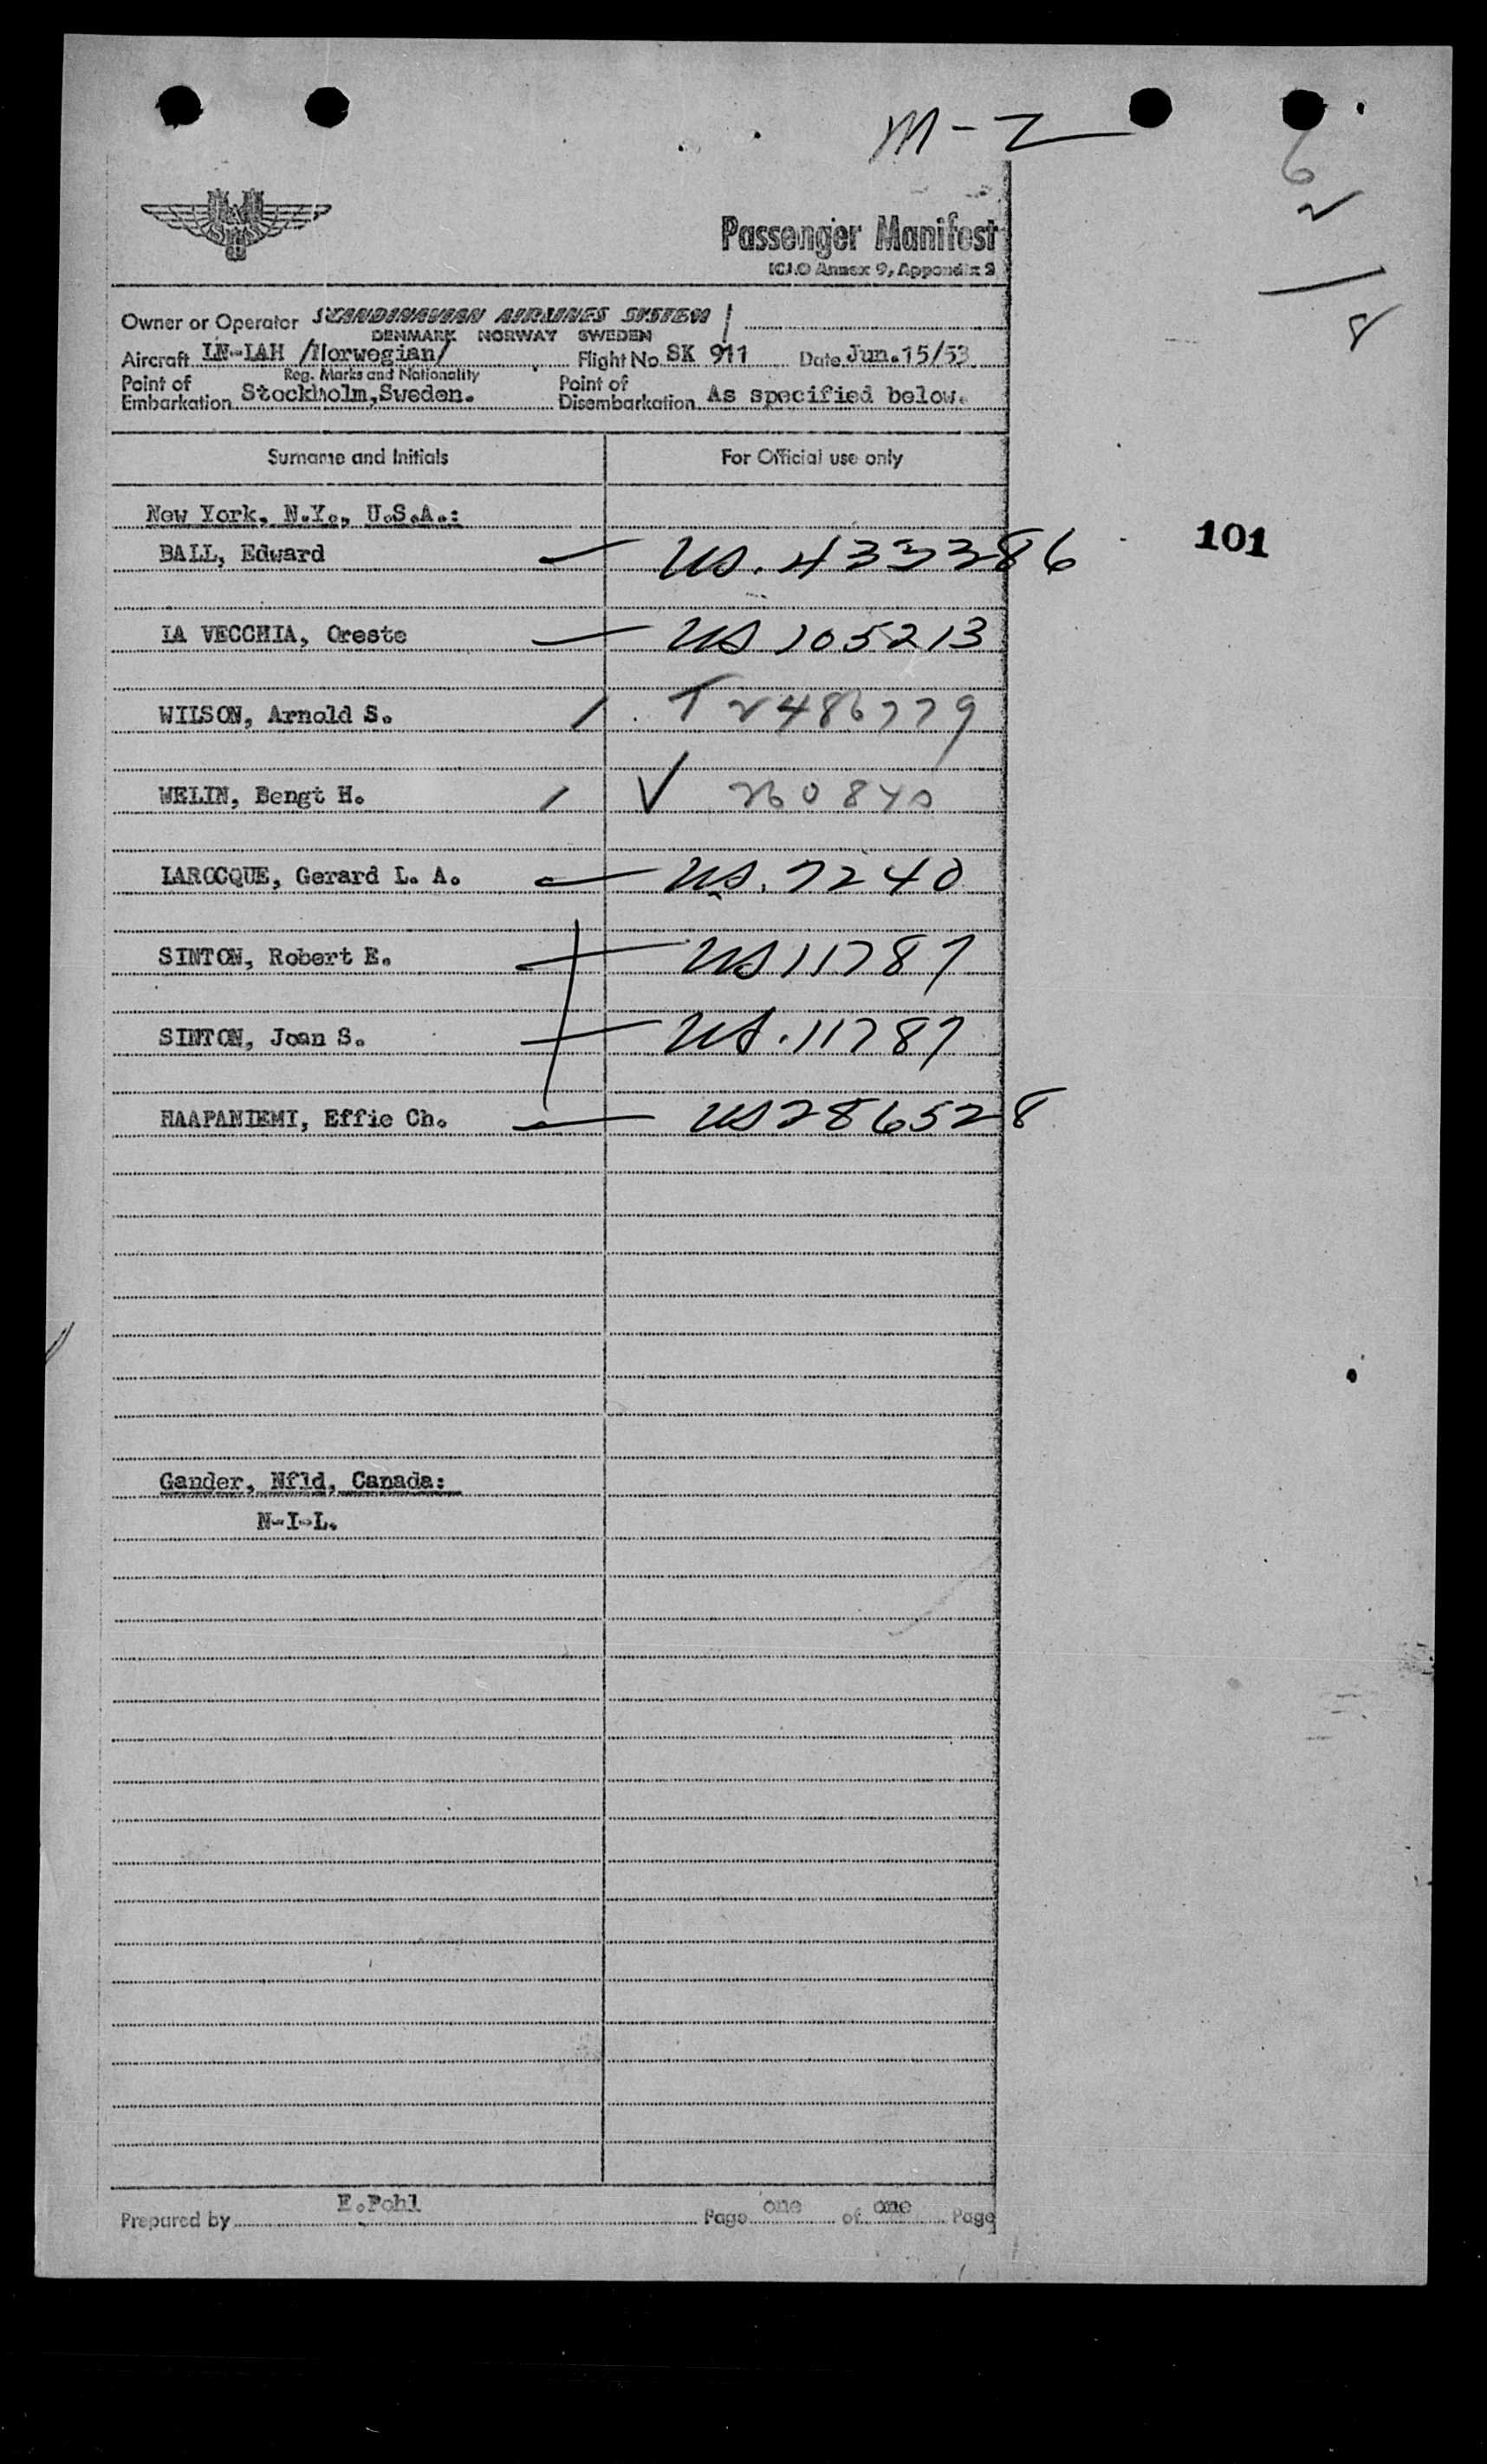 M-Z
6
2
1
8
SAS
Passenger Manifest
ICAO Annex 9, Appendix 3
Owner or Operator SCANDINAVIAN AIRLINES SYSTEM
DENMARK NORWAY SWEDEN
Aircraft LN-LAH /Norwegian/ Flight No. SK 911 Date Jun.15/53
Reg. Marks and Nationality
Point of Embarkation Stockholm,Sweden. Point of Disembarkation As specified below.
Surname and Initials For Official use only
New York, N.Y., U.S.A.:
BALL, Edward — US. 433386
101
LA VECCHIA, Oreste — US 105213
WILSON, Arnold S. / T 2486779
WELIN, Bengt H. / V 260840
LAROCQUE, Gerard L. A. — US. 7240
SINTON, Robert E. — US 11787
SINTON, Joan S. — US. 11787
HAAPANIEMI, Effie Ch. — US 286528
Gander, Nfld, Canada:
N-I-L.
Prepared by E.Pohl Page one of one Page